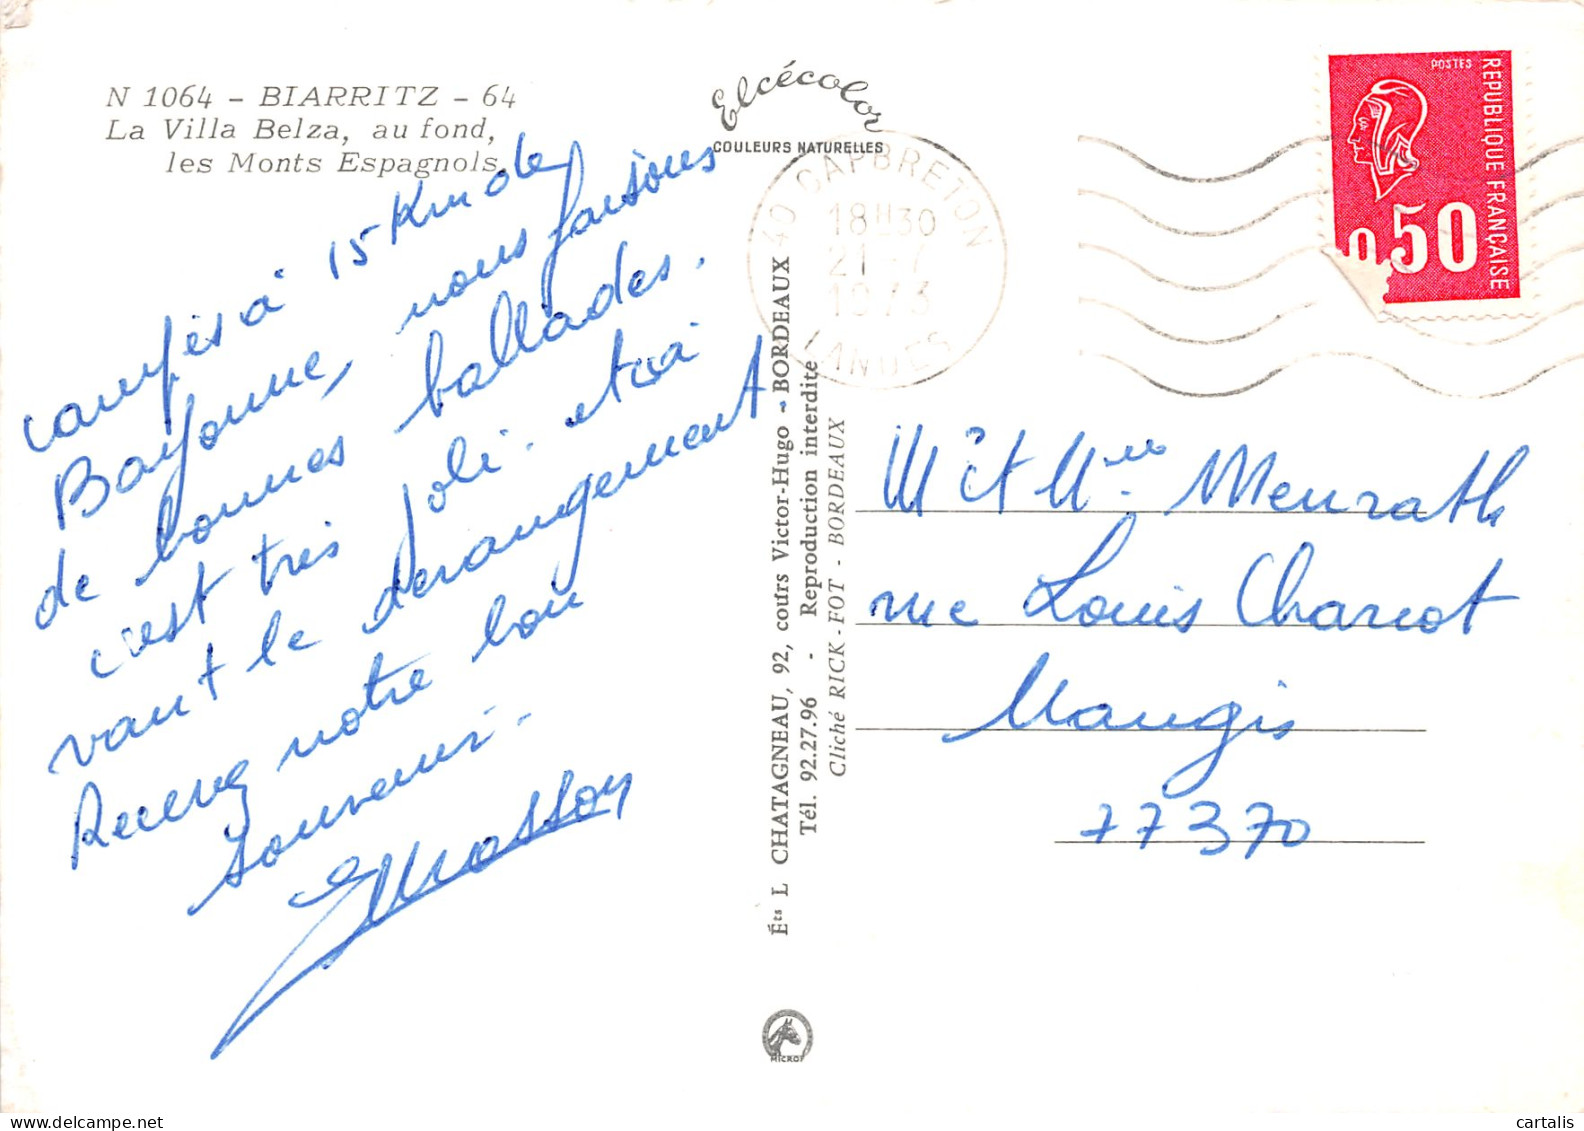 N 1064 - BIARRITZ - 64
La Villa Belza, au fond,
les Monts Espagnols.
campés à 15 Km de
Bayonne, nous faisons
de bonnes ballades.
c'est très joli. et ça
vaut le derangement
Recevez notre bon
souvenir.
EMasson
Elcécolor
COULEURS NATURELLES
40 CAPBRETON
18H30
21-7
1973
LANDES
POSTES
REPUBLIQUE FRANÇAISE
0,50
Éts L CHATAGNEAU, 92, cours Victor-Hugo - BORDEAUX
Tél. 92.27.96 - Reproduction interdite
Cliché RICK-FOT - BORDEAUX
MICKOT
Mr et Mme Meurath
rue Louis Charcot
Nangis
77370
cartalis